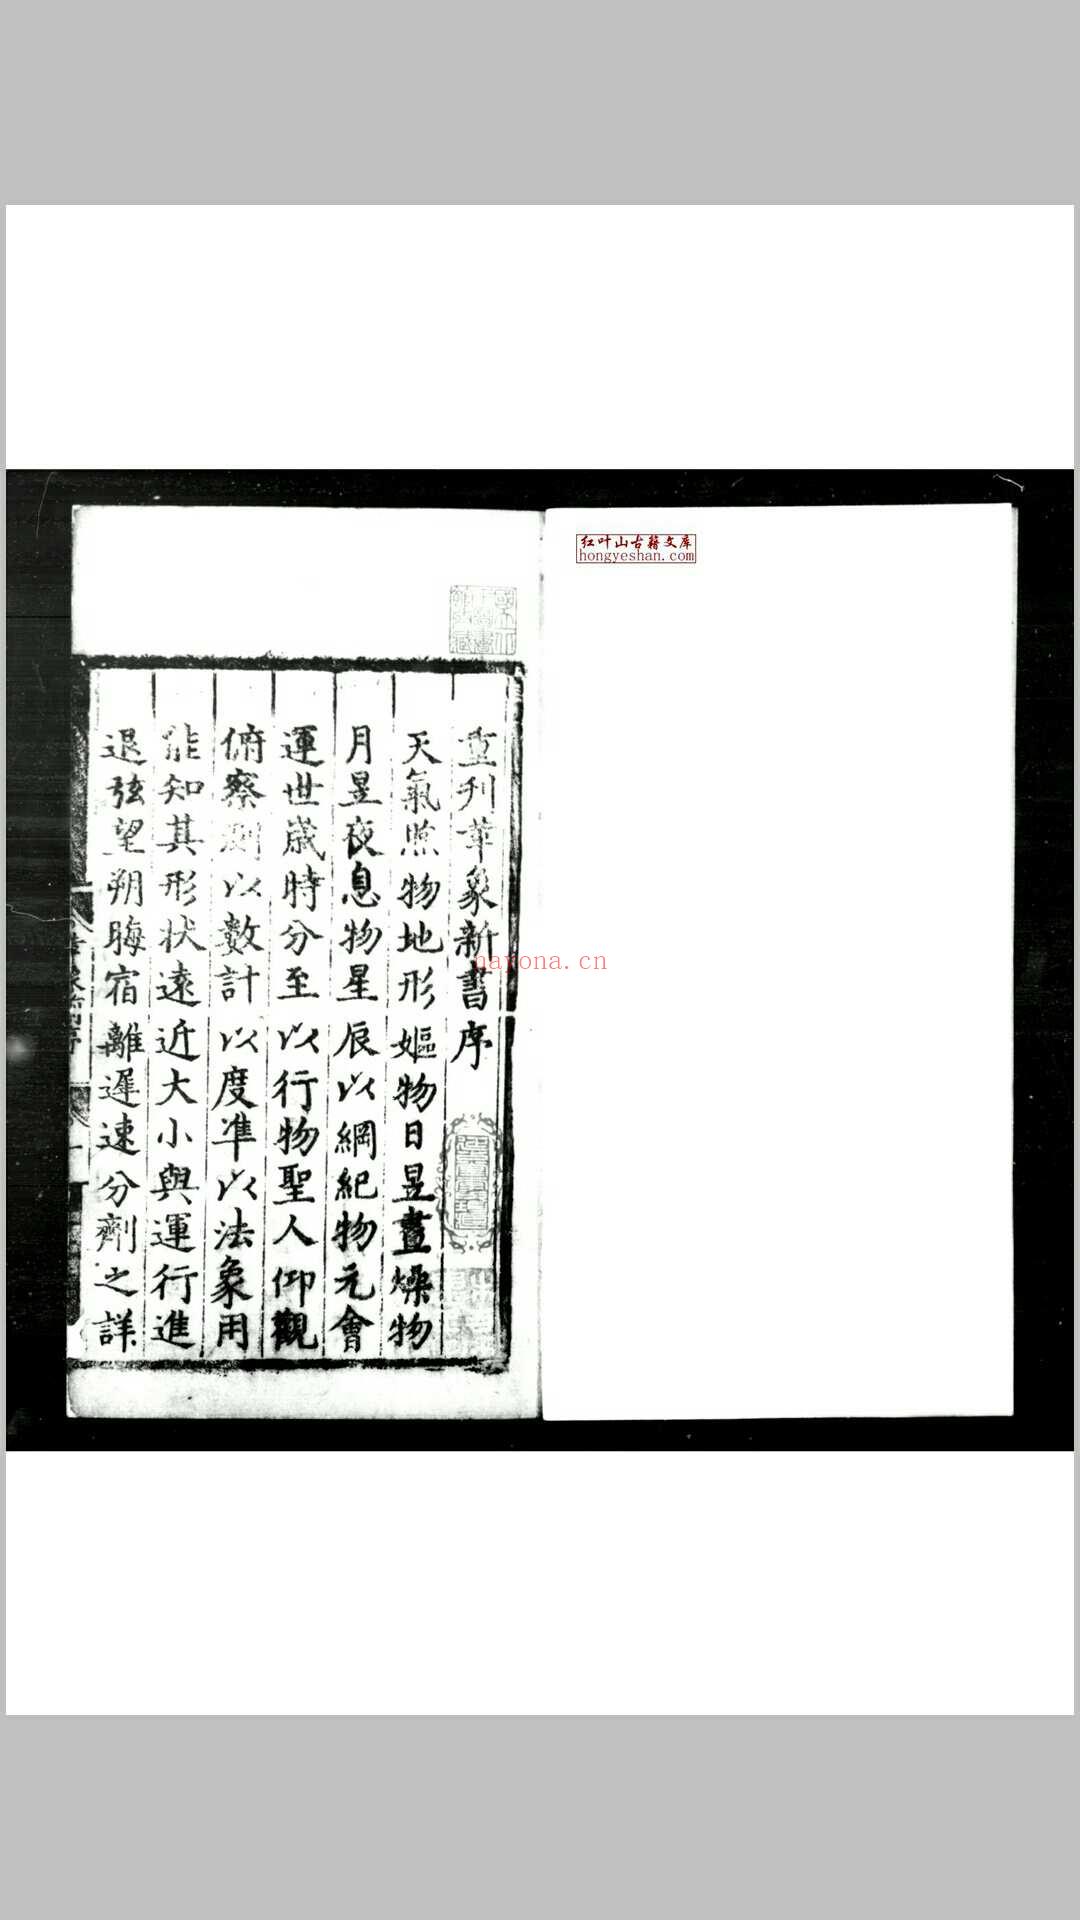 红叶山古籍文库
hongyeshan.com
nayona.cn
重刊革象新書序
天氣煦物地形嫗物日昱晝燥物
月昱夜息物星辰以綱紀物元會
運世歲時分至以行物聖人仰觀
俯察測以數計以度準以法象用
能知其形狀遠近大小與運行進
退弦望朔晦宿離遲速分劑之詳